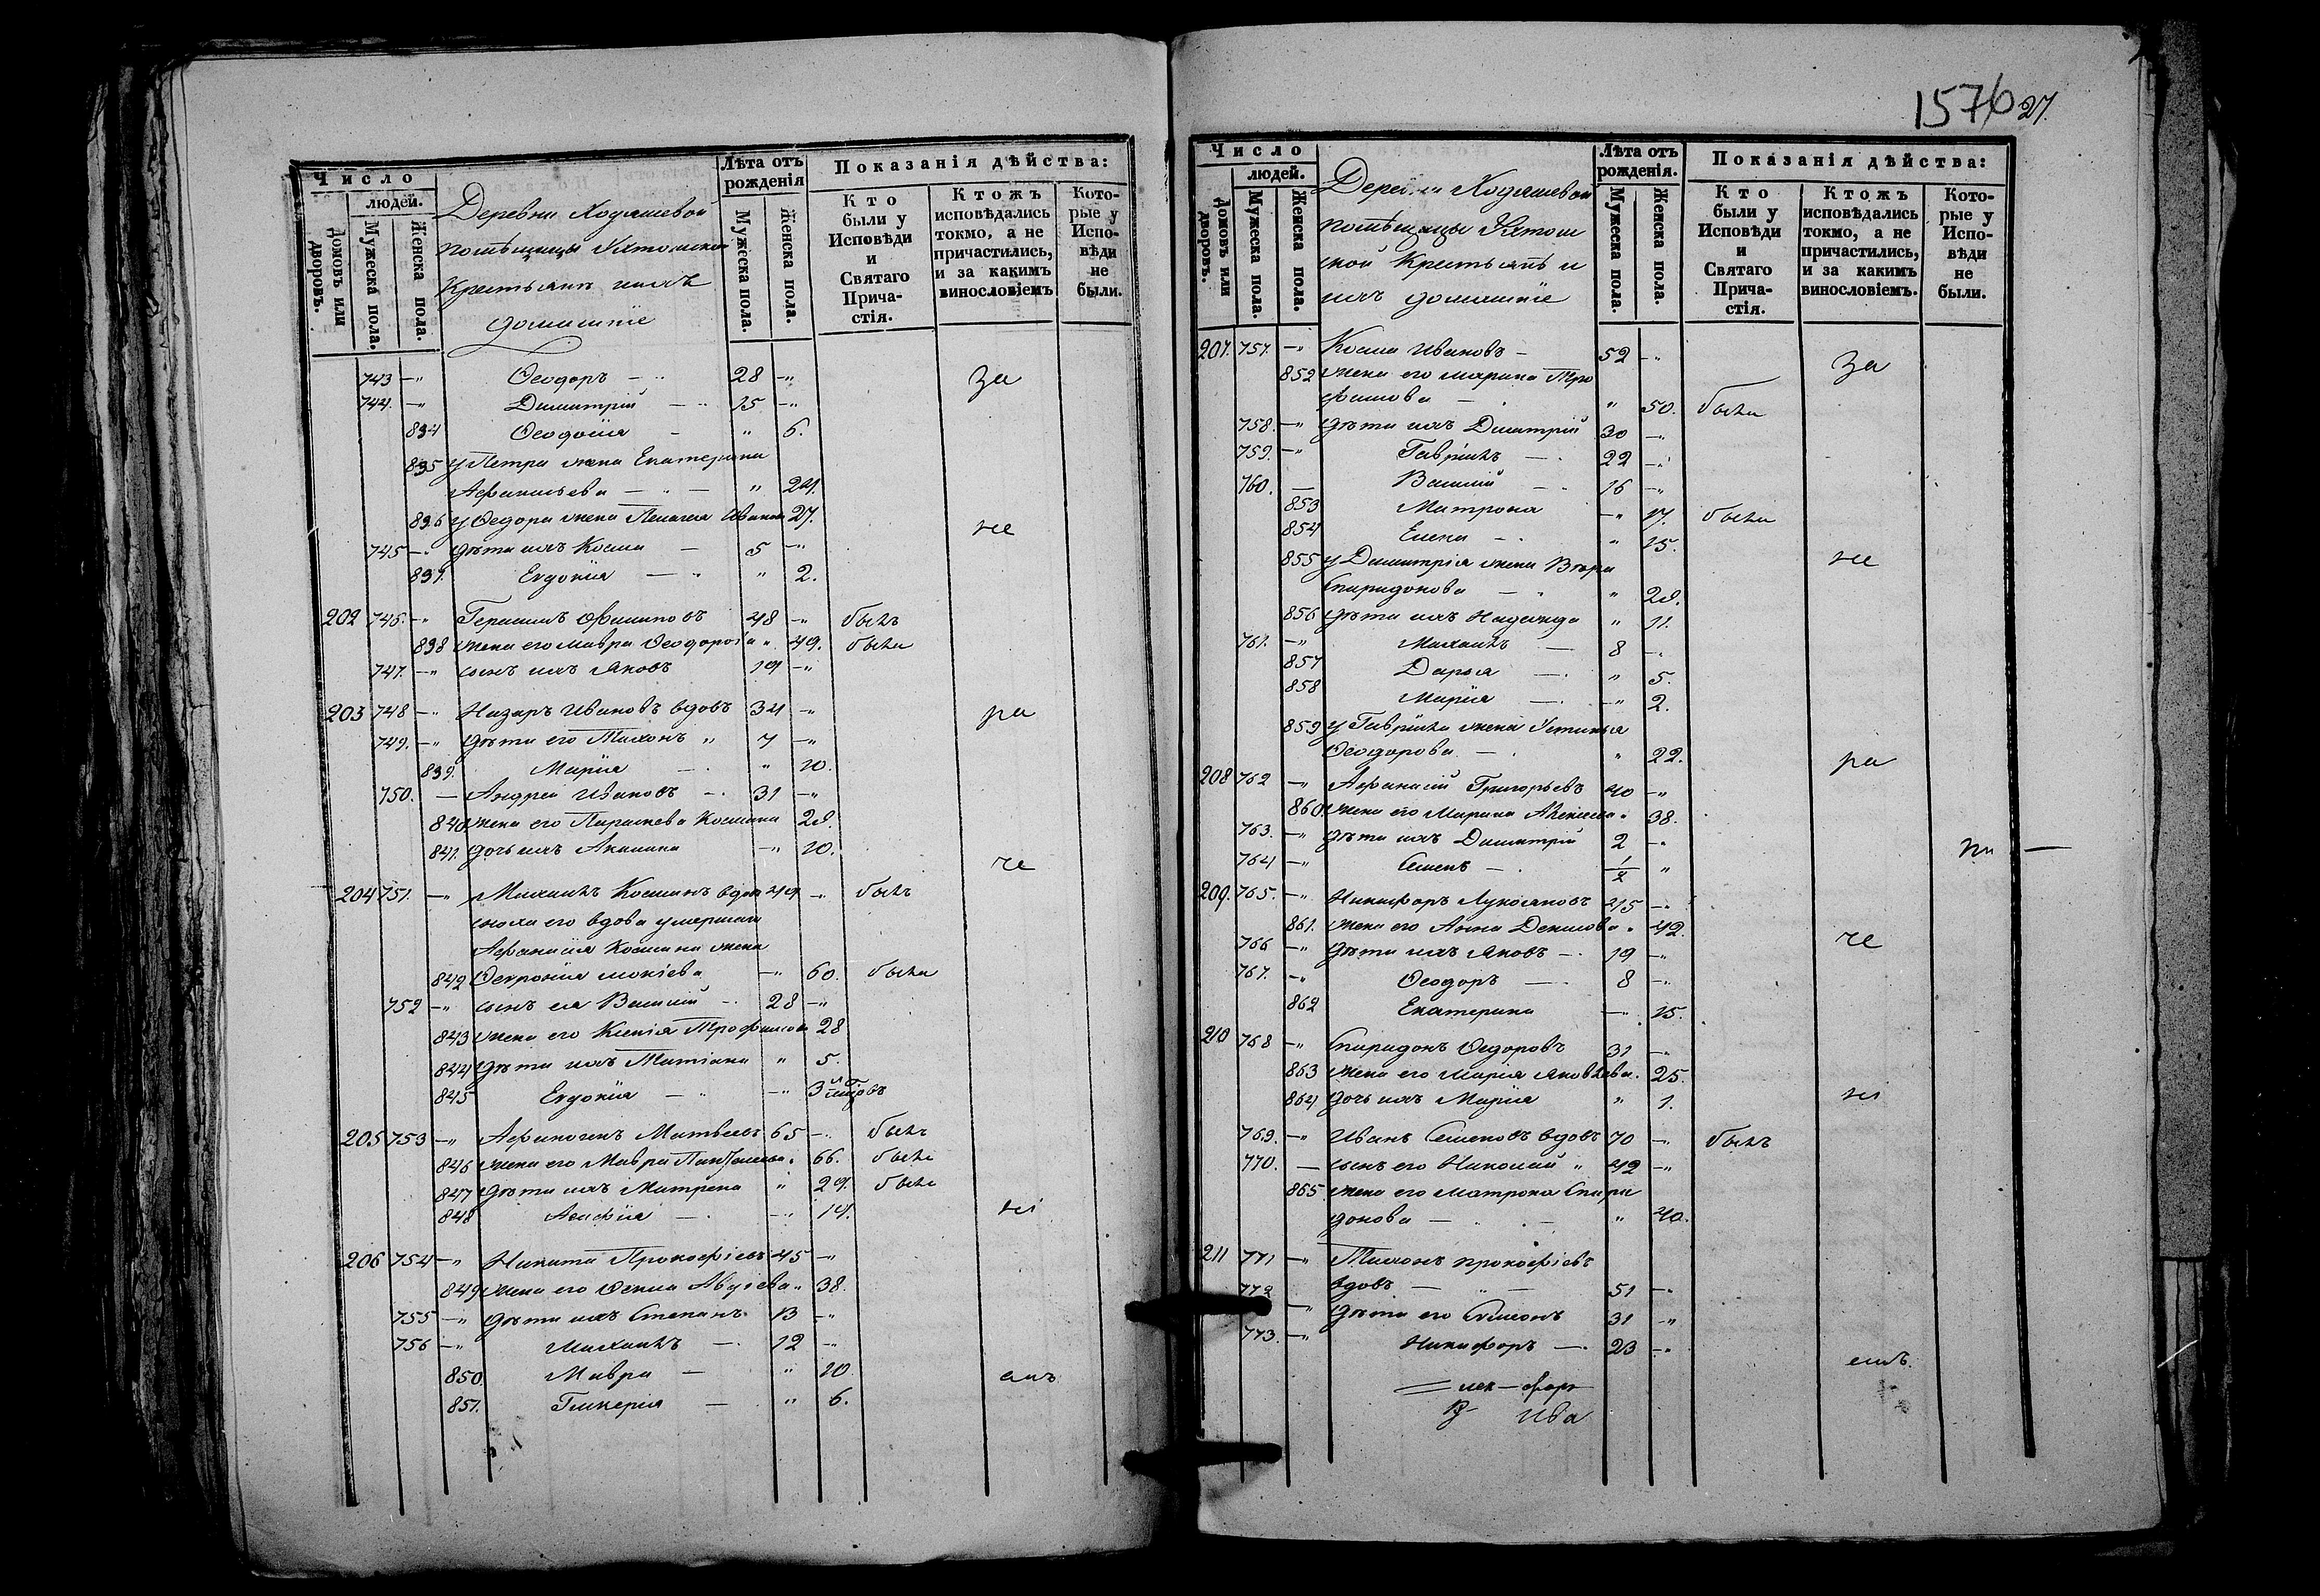 Число
людей.
Домовъ или дворовъ.
Мужеска пола.
Женска пола.
Деревни Ходяшевой
помѣщицы Ухтомской
Крестьянѣ и ихъ
домашніе
Лѣта отъ рожденія
Мужеска пола.
Женска пола.
Показанія дѣйства:
Кто были у Исповѣди и Святаго Причастія.
Ктожъ исповѣдались токмо, а не причастились, и за какимъ винословіемъ
Которые у Исповѣди не были.
743 —„ Ѳеодоръ — 28 —„ за
744. —„ Димитрій — 15 —„
834 Ѳеодосія — „ 6.
835 у Петра жена Екатерина
Афанасьева — „ 24.
836 у Ѳедора жена Пелагея Иванова 27. не
745 —„ дѣти ихъ Косма — 5 —„
837. Евдокія — „ 2.
202 746. —„ Герасимъ Филиповъ 48 —„ былъ
838 жена его Мавра Ѳеодорова „ 49. была
747. —„ сынъ ихъ Яковъ 19 —„
203 748 —„ Назаръ Ивановъ вдовъ 34 —„ ра
749. —„ дѣти его Тихонъ „ 7 —„
839. Марія — „ 10.
750. — Андрей Ивановъ — 31 —„
840 жена его Параскева Космина 28.
841. дочь ихъ Акилина —„ 10. че
204 751. —„ Михаилъ Косминъ вдов 49 —„ былъ
сноха его вдова умершаго
Афанасія Космина жена
842 Ѳевронія Мокіева —„ 60. была
752 —„ сынъ ея Василій — 28 —„
843 жена его Ксенія Трофимова 28
844 дѣти ихъ Татіана „ 5.
845 Евдокія — —„ 3
205 753 —„ Афиногенъ Матвеевъ 65 —„ былъ
846 жена его Мавра „ 66. была
847 дѣти ихъ Матрена „ 29. была
848 Агафія — —„ 14. ні
206 754 —„ Никита Прокофіевъ 45 —„
849 жена его Ѳекла „ 38.
755 —„ дѣти ихъ Степанъ 13 —„
756 —„ Михаилъ — 12 —„
850. Мавра — „ 10 емъ
851. Гликерія — „ 6.
1576 27.
Число
людей.
Домовъ или дворовъ.
Мужеска пола.
Женска пола.
Деревни Ходяшевой
помѣщицы Ухтом
ской Крестьянѣ и
ихъ домашніе
Лѣта отъ рожденія.
Мужеска пола.
Женска пола.
Показанія дѣйства:
Кто были у Исповѣди и Святаго Причастія.
Ктожъ исповѣдались токмо, а не причастились, и за какимъ винословіемъ.
Которые у Исповѣди не были.
207. 757. —„ Косма Ивановъ — 52 —„ за
852 жена его Марина Тро
фимова — „ 50. была
758. —„ дѣти ихъ Димитрій 30 —„
759. —„ Гавріилъ — 22 —„
760. — Василій — 16 —„
853 Матрона —„ 17. была
854 Елена — „ 15.
855 у Димитрія жена Вѣра не
Спиридонова — „ 28.
856 дѣти ихъ Надежда „ 11.
761. —„ Михаилъ — 8 —„
857 Дарья — „ 5.
858 Марія — —„ 2.
859 у Гавріила жена Устинья
Ѳеодорова — „ 22. ра
208 762 —„ Афанасій Григорьевъ 40 —„
860 жена его Марина „ 38.
763. —„ дѣти ихъ Димитрій 2 —„
764 —„ Семенъ — 1/2 „
209. 765. —„ Никифоръ Лукояновъ 45 —„
861. жена его Анна Денисова „ 42. че
766 —„ дѣти ихъ Яковъ — 19 —„
767. —„ Ѳеодоръ — 8 —„
862 Екатерина —„ 15.
210 768 —„ Спиридонъ Ѳедоровъ 31 —„
863 жена его Марія Яковлева. 25.
864 дочь ихъ Марія „ 1. ні
769. —„ Иванъ Семеновъ вдовъ 70 —„ былъ
770. — сынъ его Николай „ 42 —„
865 жена его Матрона Спири
донова — „ 40.
211 771 —„ Тихонъ Прокофіевъ
вдовъ — „ — 51 —„
772 —„ дѣти его Симеонъ 31 —„
773. —„ Никифоръ — 23 —„
емъ.
Ива